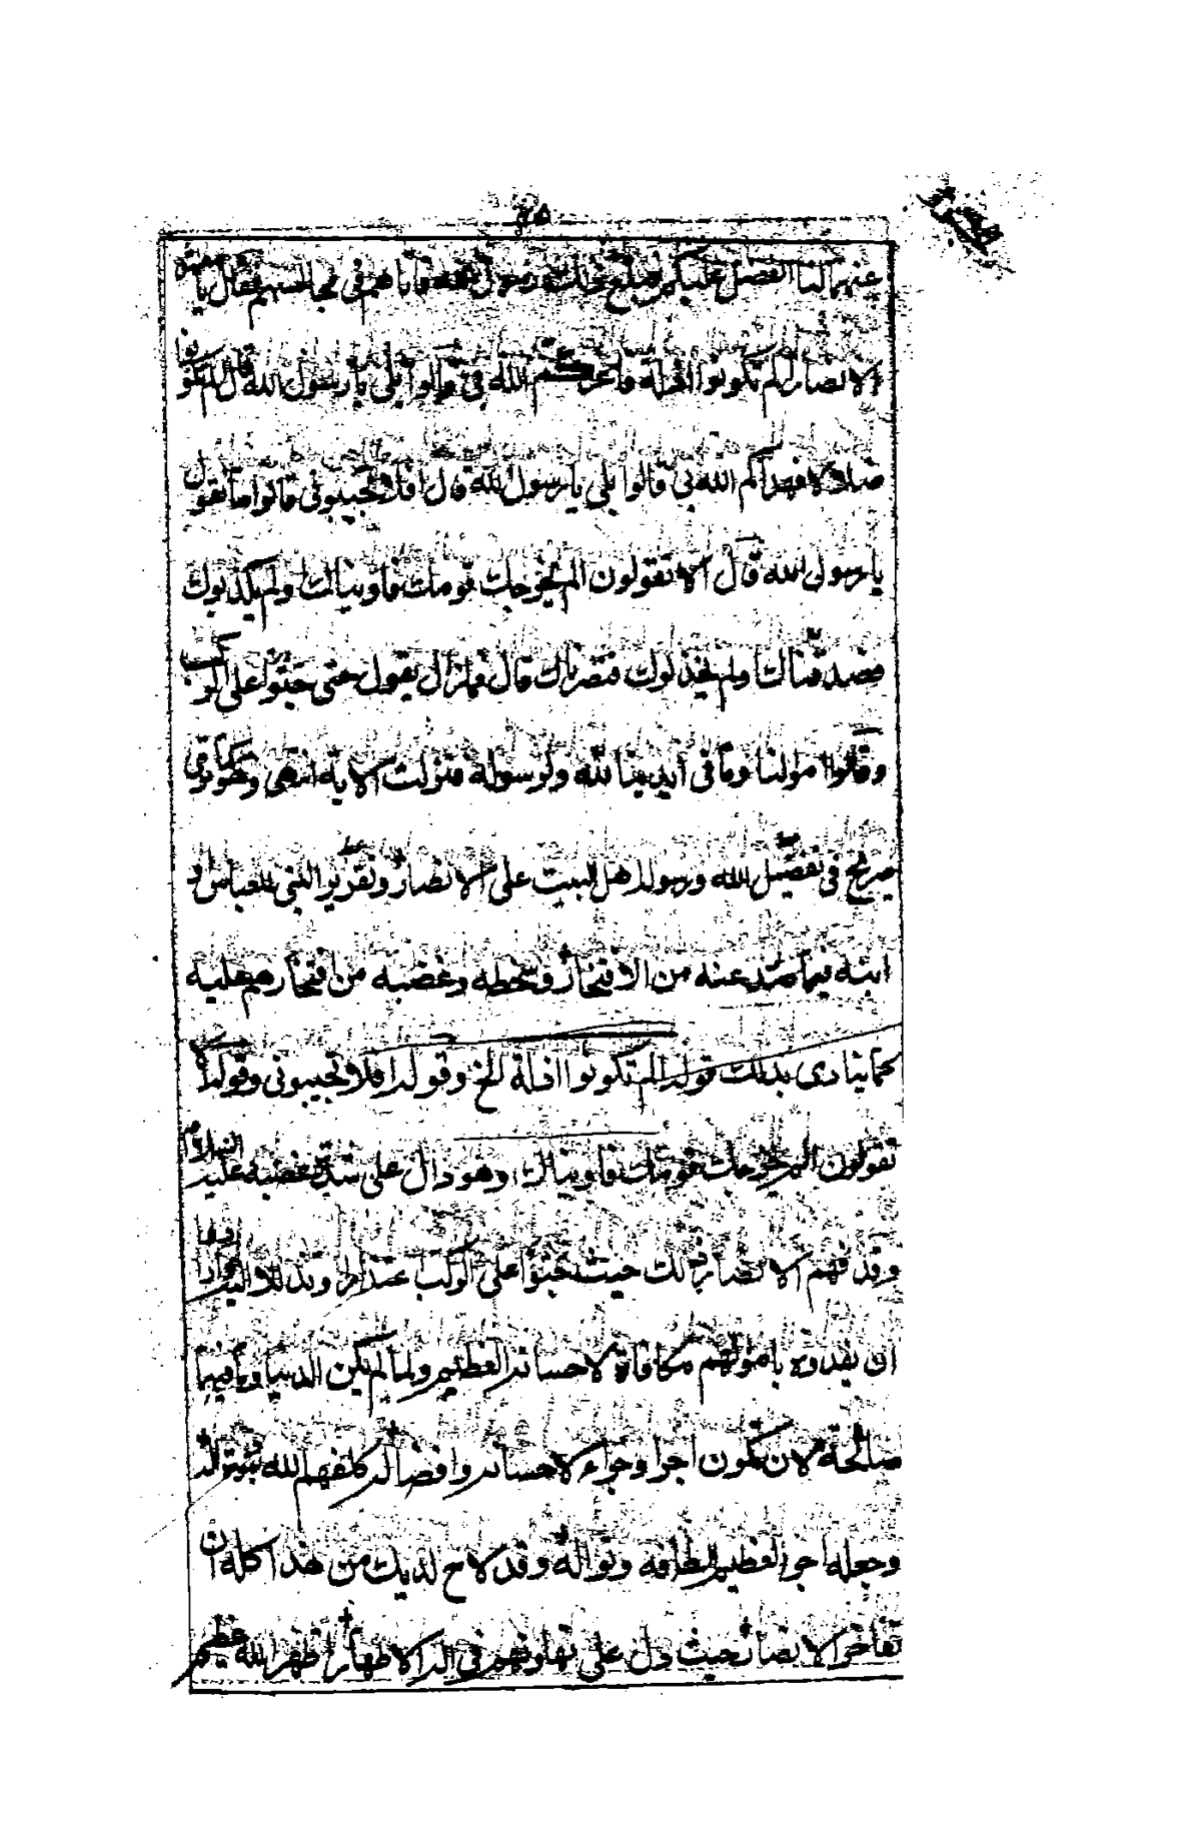 ٤٥
عنهما لنا الفضل عليكم فبلغ ذلك رسول الله فاتاهم في مجالسهم فقال يا معشر
الانصار الم تكونوا اذلة فاعزكم الله بي قالوا بلى يا رسول الله قال الم تكونوا
ضلالا فهداكم الله بي قالوا بلى يا رسول الله قال افلا تجيبوني قالوا ما نقول
يا رسول الله قال الا تقولون الم يخرجك قومك فاويناك اولم يكذبوك
فصدقناك اولم يخذلوك فنصرناك قال فما زال يقول حتى جثوا على الركب
وقالوا اموالنا وما في ايدينا لله ولرسوله فنزلت الاية انتهى وهو كما ترى
صريح في تفضيل الله ورسوله اهل البيت على الانصار وتقرير النبي للعباس و
ابنه فيما صدر عنه من الافتخار وسخطه وغضبه من افتخارهم عليه
كما ينادى بذلك قوله الم تكونوا اذلة الخ وقوله افلا تجيبوني وقوله الا
تقولون الم يخرجك قومك فاويناك وهو دال على شدة غضبه عليه السلام
وقد فهم الانصار ذلك حيث جثوا على الركب عتذارا وتذللا اليه وارادوا
ان يفدوه باموالهم مكافاة لاحسانه العظيم ولما لم يكن الدنيا وما فيها
صالحة لان تكون اجرا وجزاء لاحسانه وافضاله كلفهم الله
وجعله اجر العظيم الطافه ونواله وقد لاح لديك من هذا كله ان
تفاخر الانصار حيث دل على تهاونهم في اله الاطهار اظهر الله عظيم